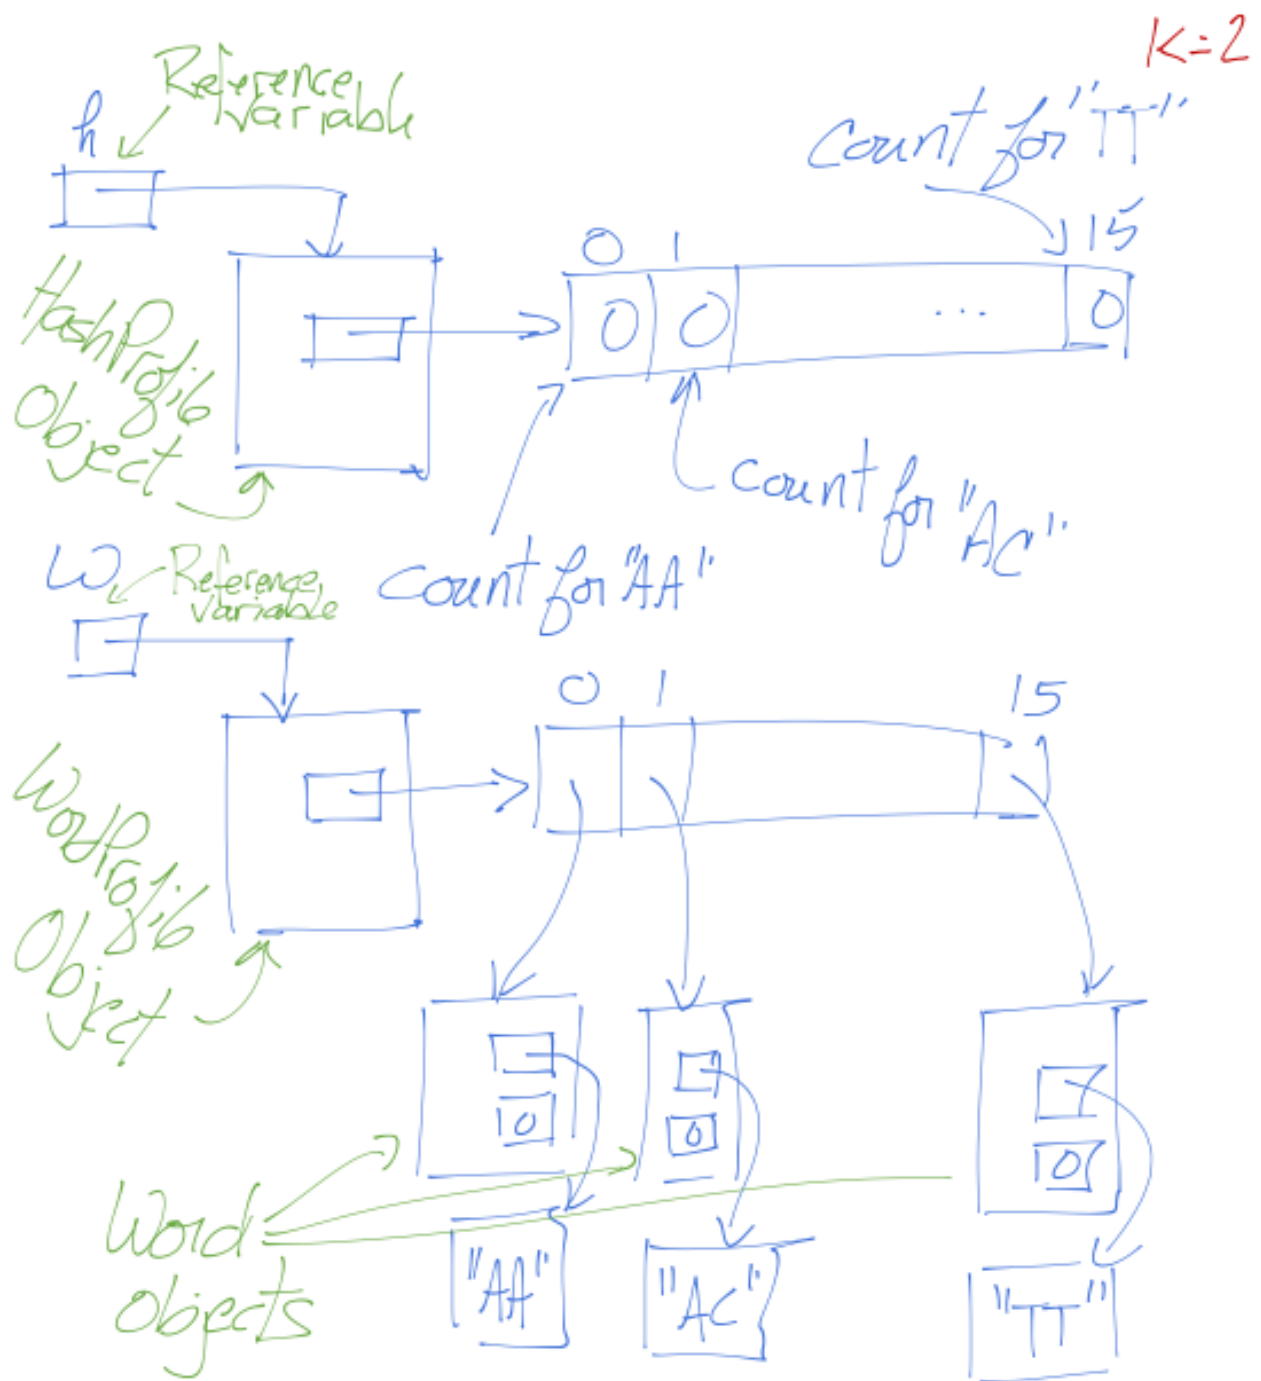 K=2
Reference
variable
h
count for "TT"
0 1 15
0 0 ... 0
HashProfile
Object
count for "AC"
count for "AA"
w
Reference
variable
0 1 15
WordProfile
Object
0 0 0
Word
objects
"AA" "AC" "TT"